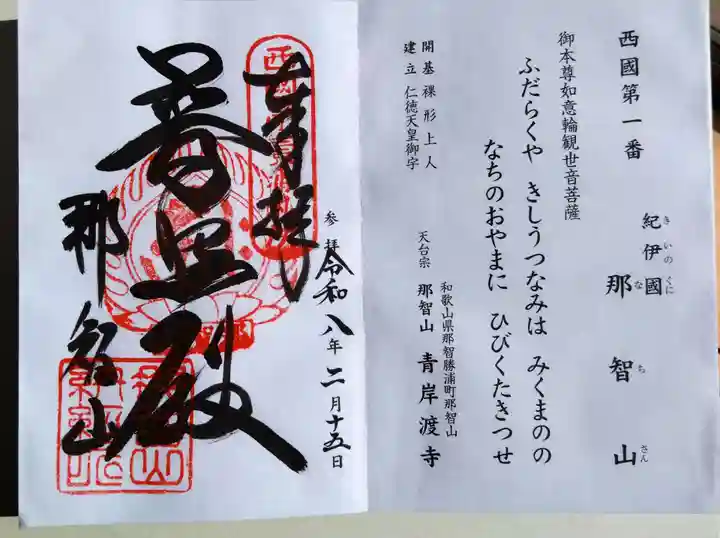 西國第一番
紀伊國 那智山
きいのくに なちさん
御本尊如意輪観世音菩薩
ふだらくや きしうつなみは みくまのの
なちのおやまに ひびくたきつせ
開基 裸形上人
建立 仁徳天皇御宇
和歌山県那智勝浦町那智山
天台宗 那智山 青岸渡寺
奉拝
参拝 令和八年二月十五日
普照殿
那智山